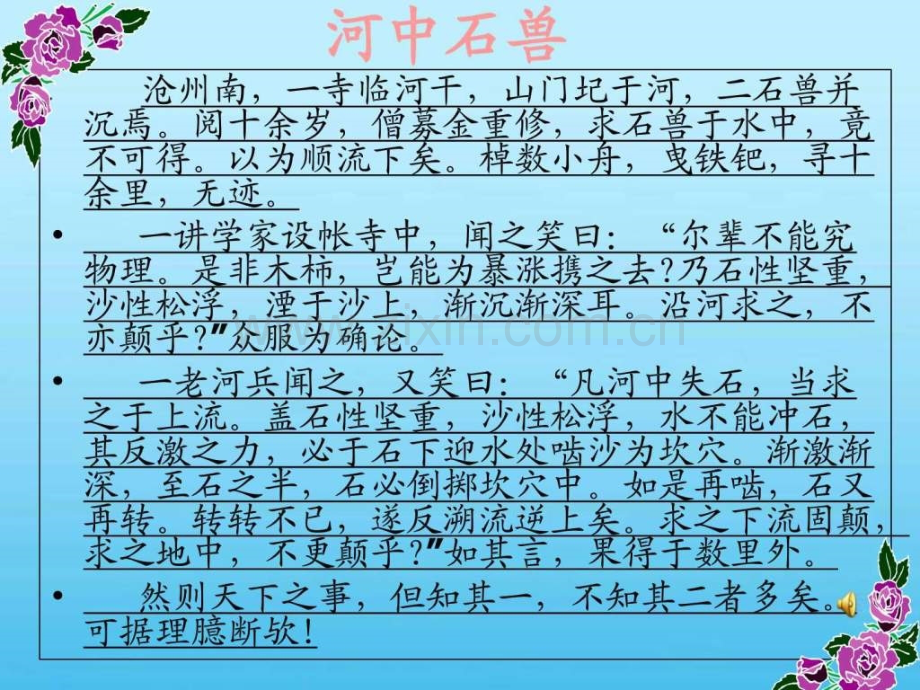 河中石兽
沧州南，一寺临河干，山门圮于河，二石兽并
沉焉。阅十余岁，僧募金重修，求石兽于水中，竟
不可得。以为顺流下矣。棹数小舟，曳铁钯，寻十
余里，无迹。
• 一讲学家设帐寺中，闻之笑曰：“尔辈不能究
物理。是非木杮，岂能为暴涨携之去?乃石性坚重，
沙性松浮，湮于沙上，渐沉渐深耳。沿河求之，不
亦颠乎?”众服为确论。
• 一老河兵闻之，又笑曰：“凡河中失石，当求
之于上流。盖石性坚重，沙性松浮，水不能冲石，
其反激之力，必于石下迎水处啮沙为坎穴。渐激渐
深，至石之半，石必倒掷坎穴中。如是再啮，石又
再转。转转不已，遂反溯流逆上矣。求之下流固颠，
求之地中，不更颠乎?”如其言，果得于数里外。
• 然则天下之事，但知其一，不知其二者多矣。
可据理臆断欤!